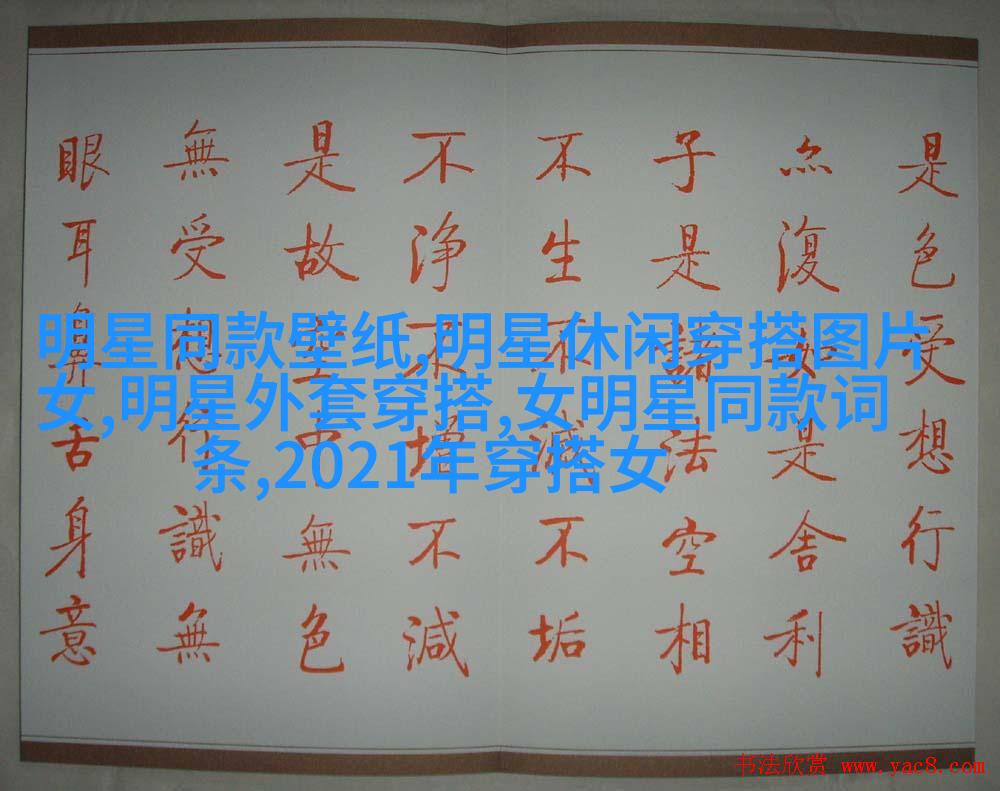 是色受想行識
亦復如是舍利
子是諸法空相
不生不滅不垢
不净不增不減
是故空中無色
無受想行識無
眼耳鼻舌身意
明星同款壁纸,明星休闲穿搭图片
女,明星外套穿搭,女明星同款词
条,2021年穿搭女
书法欣赏 www.yac8.com